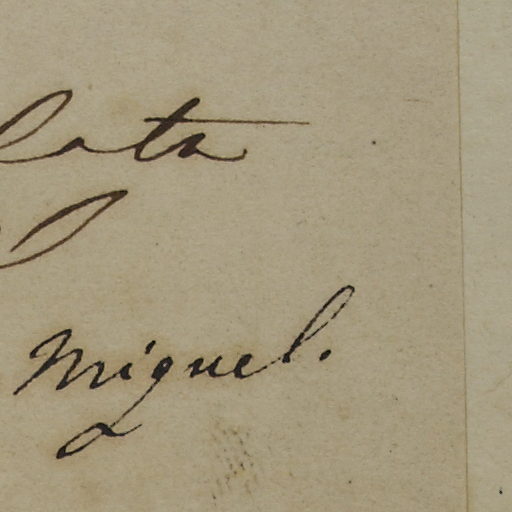 lata
l
Miguel.